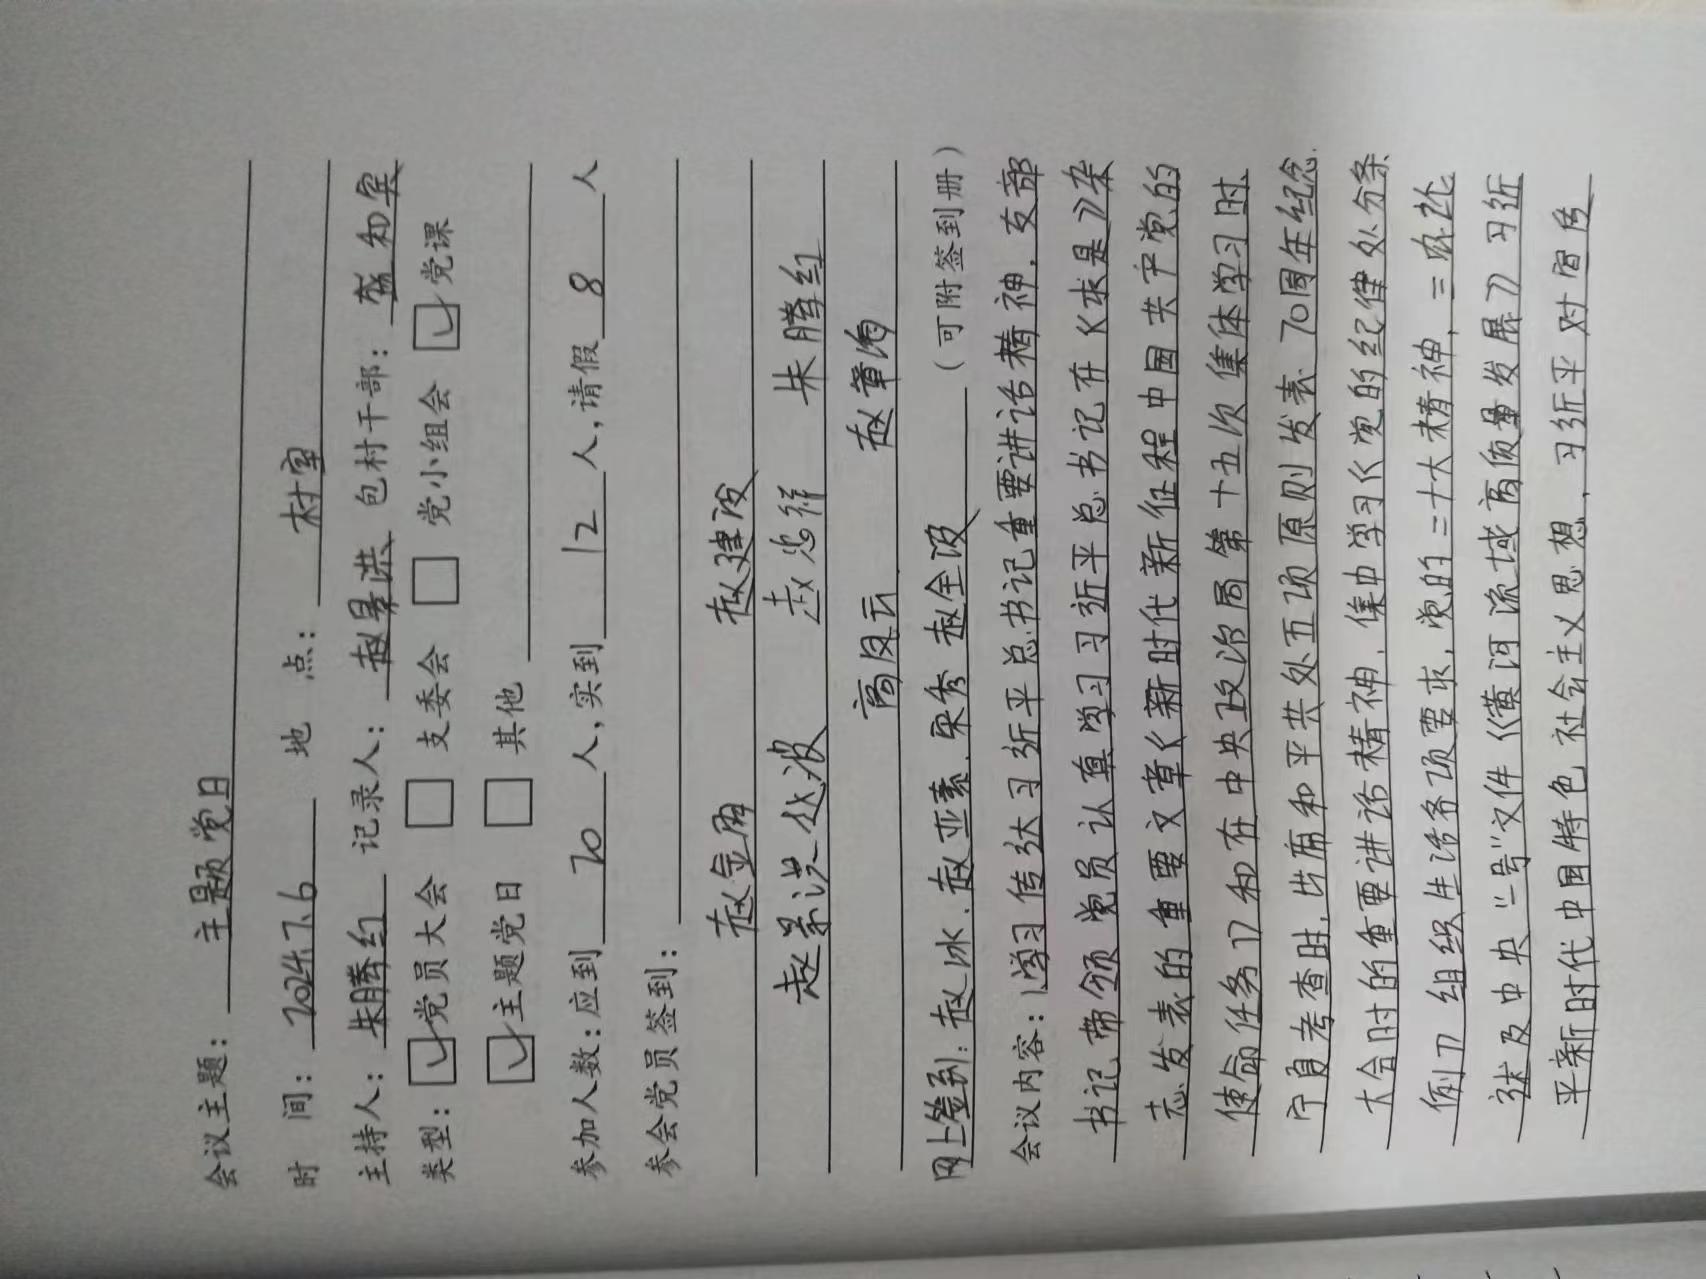 会议主题：主题党日
时 间：2024.7.6 地 点：村室
主持人：朱腾红 记录人：赵景洪 包村干部：和宾
类型：☑党员大会 □支委会 □党小组会 ☑党课
☑主题党日 □其他
参加人数：应到20人，实到12人，请假8人
参会党员签到：
赵金 赵建设
赵景洪 赵 朱腾红
高凤云 赵章
网上签到：赵冰、赵亚素、秀 赵全设（可附签到册）
会议内容：1学习传达习近平总书记重要讲话精神，支部
书记带领党员认真学习习近平总书记在《求是》杂
志发表的重要文章《新时代新征程中国共产党的
使命任务》和在中央政治局第十五次集体学习时、
宁夏考察时，出席和平共处五项原则发表70周年纪念
大会时的重要讲话精神，集中学习《党的纪律处分条
例》组织生活各项要求，党的二十大精神，三农
状及中央"一号"文件《黄河流域高质量发展》习近
平新时代中国特色社会主义思想，习近平对宣传